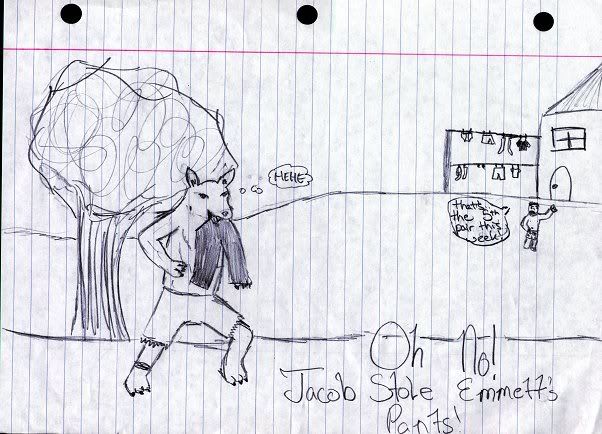 HEHE
thats
the 5th
pair this
week!
Oh No!
Jacob Stole Emmett's
Pants!